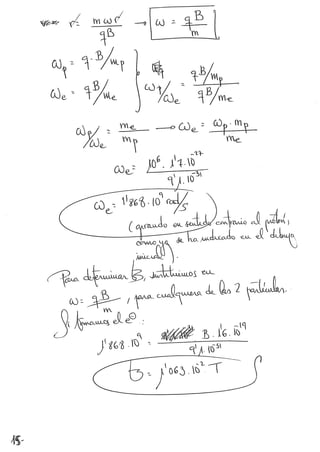 r = mωr / qB → ω = qB / m
ωp = q·B / mp
ωe = qB / me
ωp / ωe = qB/mp / qB/me
ωp / ωe = me / mp → ωe = ωp · mp / me
ωe = 10⁶ · 1'7·10⁻²⁷ / 9'1·10⁻³¹
ωe = 1'868·10⁹ rad/s
(girando en sentido contrario al protón,
como ya se ha indicado en el dibujo
inicial).
Para determinar B, sustituimos en
ω = qB / m , para cualquiera de las 2 partículas.
Si tomamos el e⊖:
1'868·10⁹ = B·1'6·10⁻¹⁹ / 9'1·10⁻³¹
B = 1'063·10⁻² T
15-